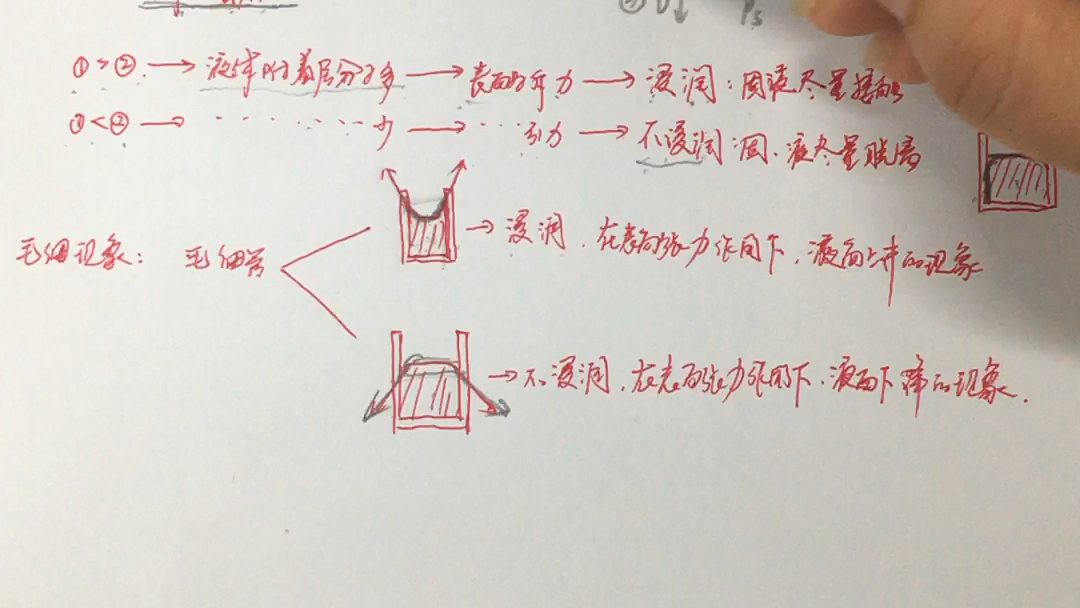 ② ↓ Ps
①>② → 液体附着层分子多 → 表面斥力 → 浸润：固液尽量接触
①<② → · · · · · · · 少 → · · · 引力 → 不浸润 固、液尽量脱离
毛细现象： 毛细管
→ 浸润，在表面张力作用下，液面上升的现象
→ 不浸润，在表面张力作用下，液面下降的现象．